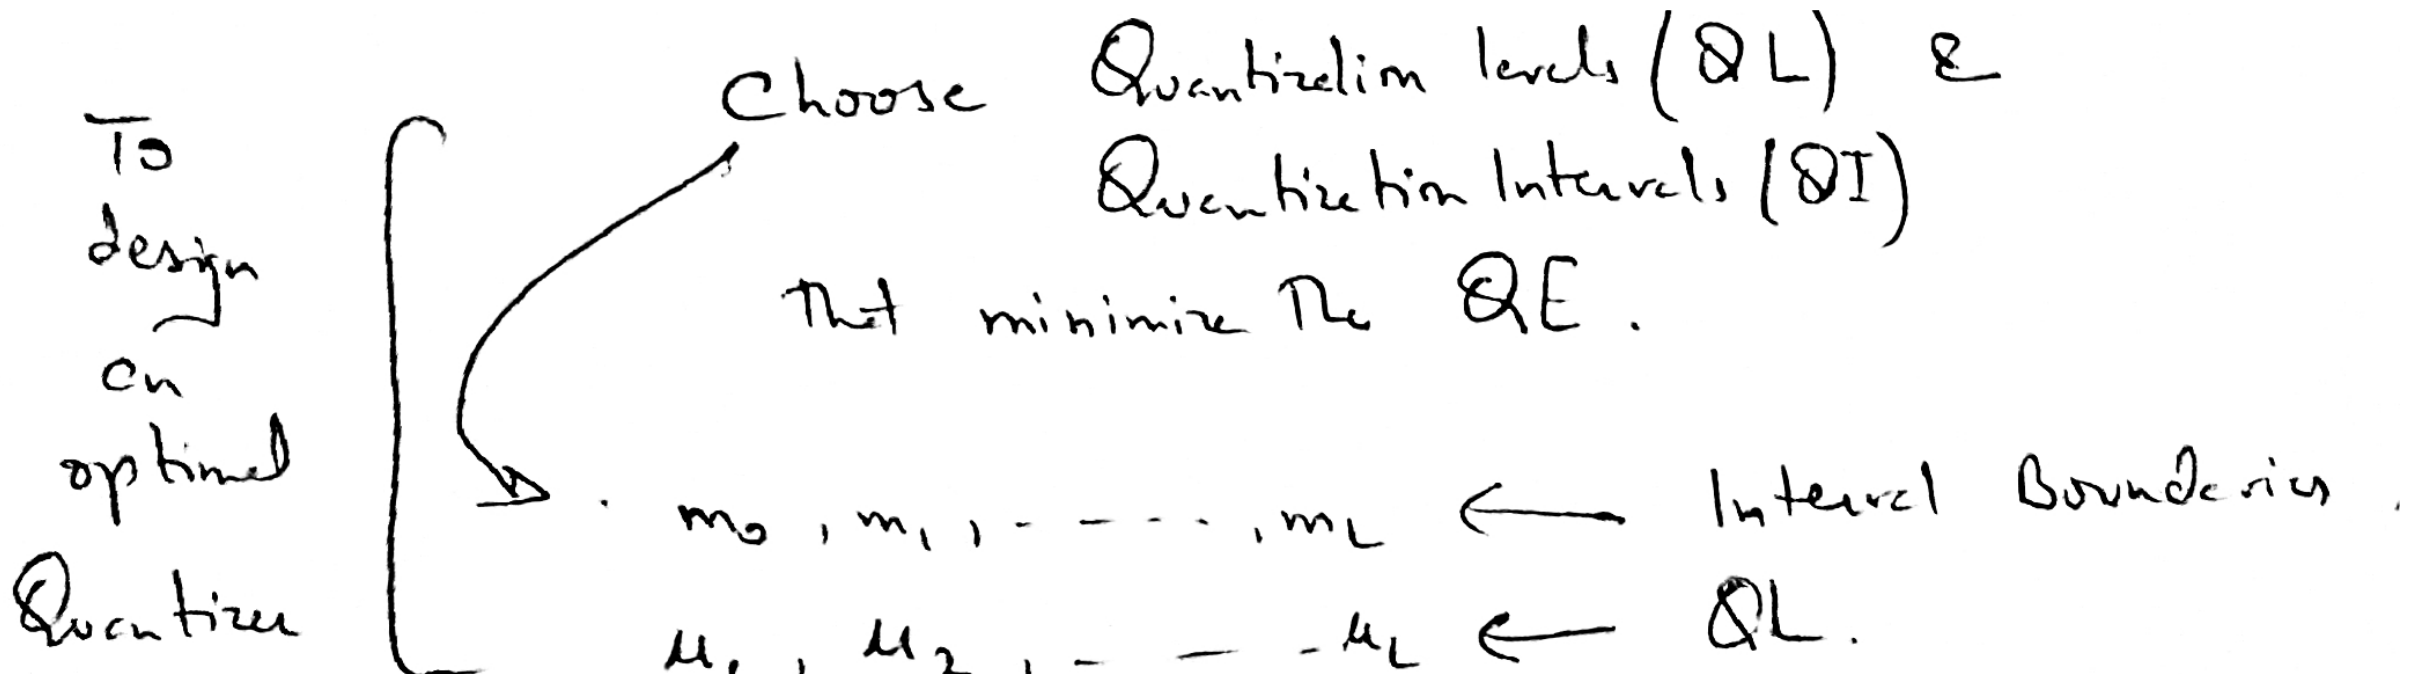 To
design
an
optimal
Quantizer
Choose Quantization levels (QL) &
Quantization Intervals (QI)
That minimize The QE.
m₀, m₁, - - - - -, m_L ← Interval Boundaries.
μ₁, μ₂, - — - μ_L ← QL.